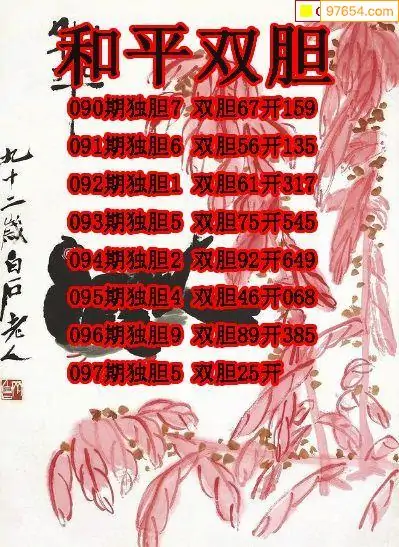 97654.com
和平双胆
090期独胆7 双胆67开159
091期独胆6 双胆56开135
092期独胆1 双胆61开317
093期独胆5 双胆75开545
094期独胆2 双胆92开649
095期独胆4 双胆46开068
096期独胆9 双胆89开385
097期独胆5 双胆25开
九十二岁白石老人